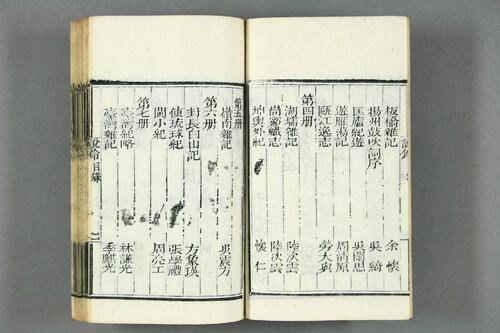 板橋雜記 余懷
揚州鼓吹詞序 吳綺
匡廬紀遊 吳闡思
遊雁蕩記 周清原
甌江逸志 勞大與
第四册
湖壖雜記 陸次雲
峒谿纖志 陸次雲
坤輿外紀 懷仁
第五册
嶺南雜記 吳震方
第六册
封長白山記 方象瑛
使琉球紀 張學禮
閩小紀 周亮工
第七册
臺灣紀略 林謙光
臺灣雜記 季麒光
說鈴目錄 二